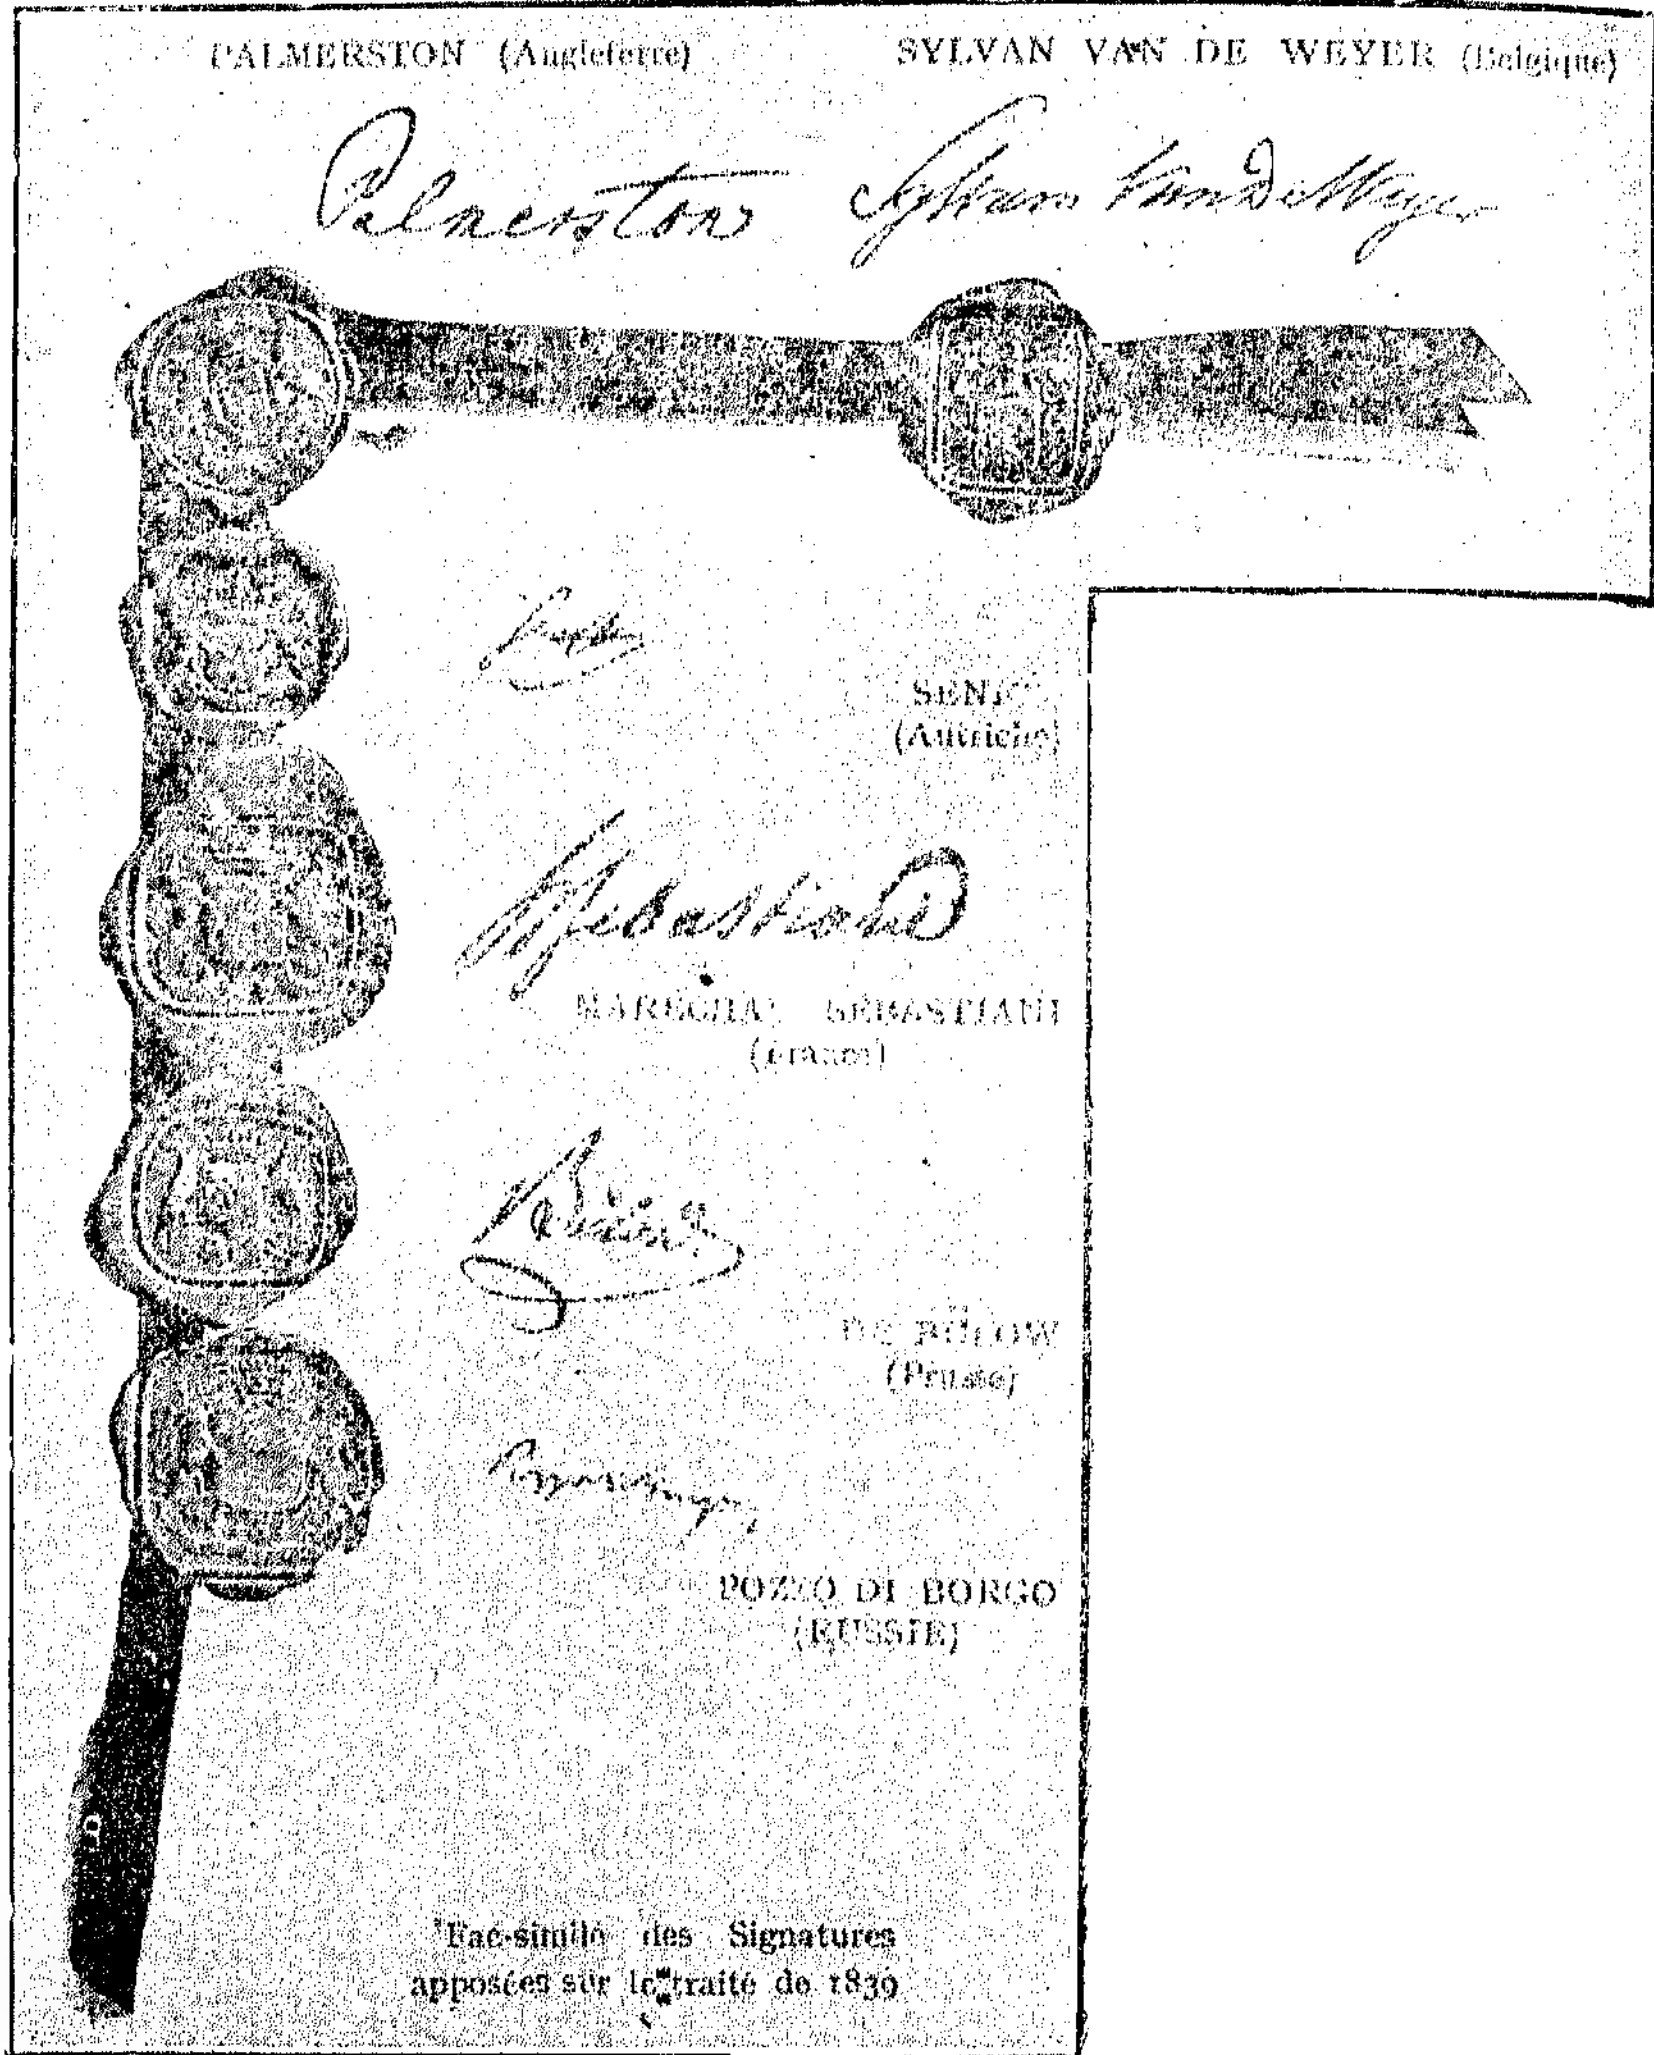 PALMERSTON (Angleterre)
SYLVAN VAN DE WEYER (Belgique)
Palmerston
Sylvan Van De Weyer
(Autriche)
Sebastiani
MARECHAL SEBASTIANI
(France)
DE BULOW
(Prusse)
POZZO DI BORGO
(RUSSIE)
Fac-similé des Signatures
apposées sur le traité de 1839